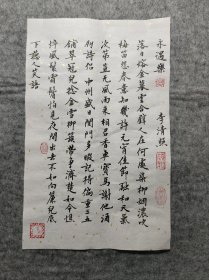 永遇樂 李清照
落日熔金暮雲合璧人在何處染柳煙濃吹
梅笛怨春意知幾許元宵佳節融和天氣
次第豈無風雨來相召香車寶馬謝他酒
朋詩侶中州盛日閨門多暇記得偏重三五
鋪翠冠兒捻金雪柳簇帶爭濟楚如今憔
悴風鬟霜鬢怕見夜間出去不如向簾兒底
下聽人笑語